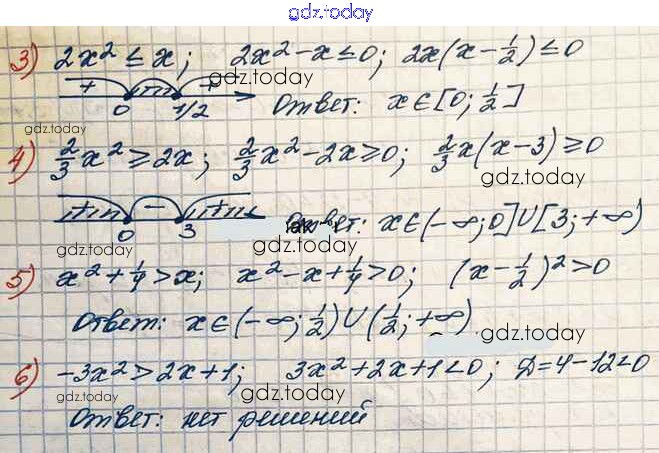 gdz.today
3) 2x² ≤ x; 2x² - x ≤ 0; 2x(x - 1/2) ≤ 0
+ + gdz.today
0 1/2 Ответ: x ∈ [0; 1/2]
gdz.today
4) 2/3x² ≥ 2x; 2/3x² - 2x ≥ 0; 2/3x(x - 3) ≥ 0
gdz.today
+ - +
0 3 Ответ: x ∈ (-∞; 0] ∪ [3; +∞)
gdz.today gdz.today
5) x² + 1/4 > x; x² - x + 1/4 > 0; (x - 1/2)² > 0
Ответ: x ∈ (-∞; 1/2) ∪ (1/2; +∞)
gdz.today gdz.today
6) -3x² > 2x + 1; 3x² + 2x + 1 < 0; Д = 4 - 12 < 0
gdz.today gdz.today
Ответ: нет решений